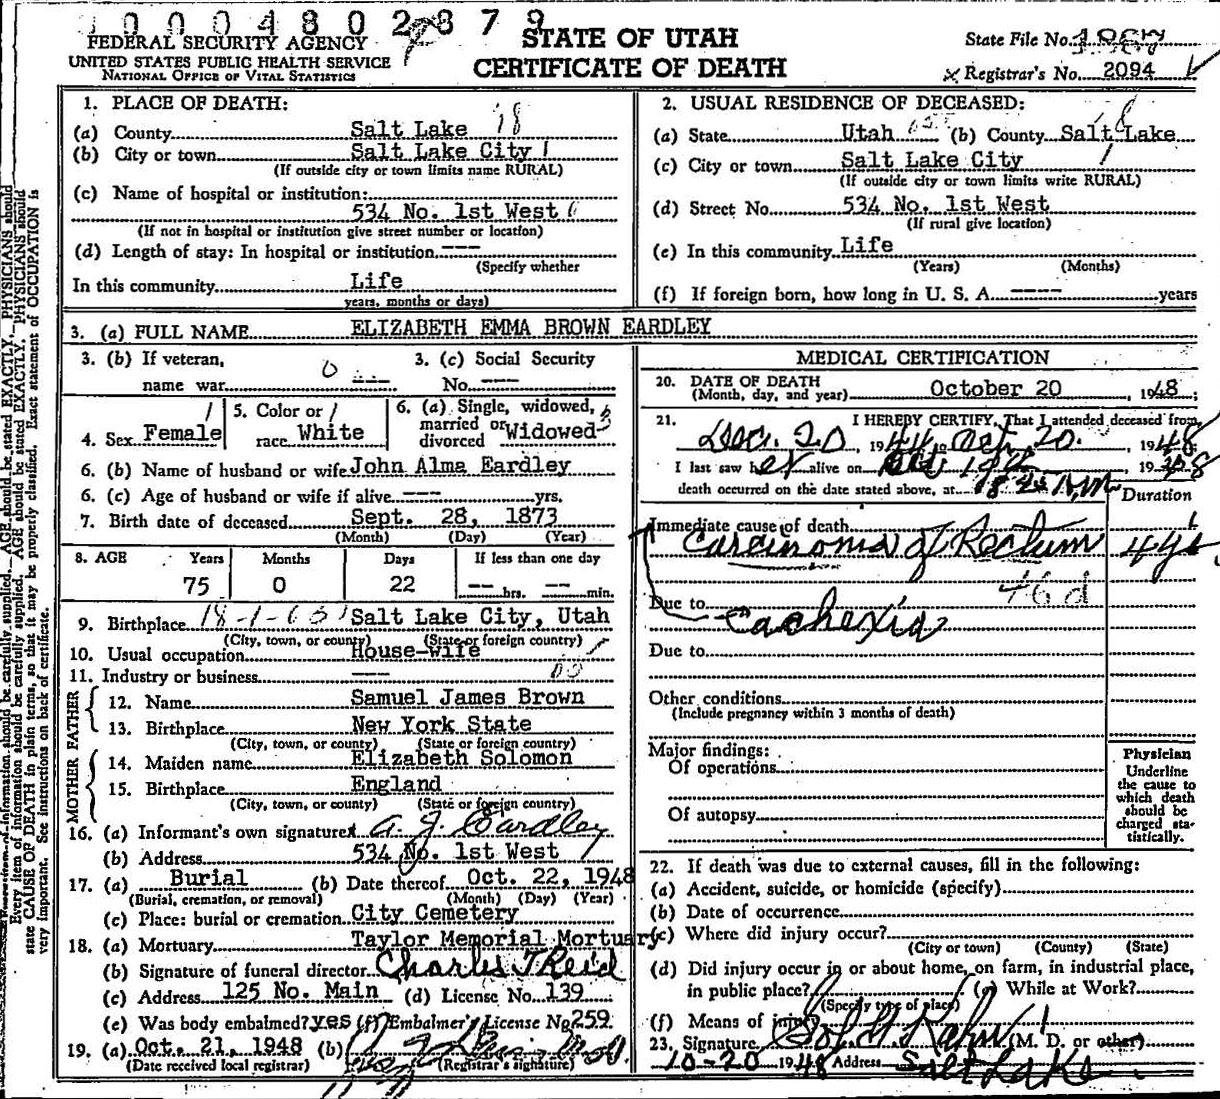 0 0 0 4 8 0 2 8 7 9
FEDERAL SECURITY AGENCY
UNITED STATES PUBLIC HEALTH SERVICE
NATIONAL OFFICE OF VITAL STATISTICS
STATE OF UTAH
CERTIFICATE OF DEATH
State File No.
Registrar's No. 2094
1. PLACE OF DEATH:
(a) County Salt Lake 18
(b) City or town Salt Lake City 1
(If outside city or town limits name RURAL)
(c) Name of hospital or institution:
534 No. 1st West
(If not in hospital or institution give street number or location)
(d) Length of stay: In hospital or institution ---
(Specify whether
In this community Life
years, months or days)
2. USUAL RESIDENCE OF DECEASED:
(a) State Utah (b) County Salt Lake
(c) City or town Salt Lake City
(If outside city or town limits write RURAL)
(d) Street No. 534 No. 1st West
(If rural give location)
(e) In this community Life
(Years) (Months)
(f) If foreign born, how long in U. S. A. ---- years
3. (a) FULL NAME ELIZABETH EMMA BROWN EARDLEY
3. (b) If veteran,
name war 0 ---
3. (c) Social Security
No. ---
4. Sex Female
5. Color or
race White
6. (a) Single, widowed,
married or
divorced Widowed
6. (b) Name of husband or wife John Alma Eardley
6. (c) Age of husband or wife if alive --- yrs.
7. Birth date of deceased Sept. 28, 1873
(Month) (Day) (Year)
8. AGE Years Months Days If less than one day
75 0 22 -- hrs. -- min.
9. Birthplace Salt Lake City, Utah
(City, town, or county) (State or foreign country)
10. Usual occupation House-wife
11. Industry or business ---
FATHER
12. Name Samuel James Brown
13. Birthplace New York State
(City, town, or county) (State or foreign country)
MOTHER
14. Maiden name Elizabeth Solomon
15. Birthplace England
(City, town, or county) (State or foreign country)
16. (a) Informant's own signature A. J. Eardley
(b) Address 534 No. 1st West
17. (a) Burial (b) Date thereof Oct. 22, 1948
(Burial, cremation, or removal) (Month) (Day) (Year)
(c) Place: burial or cremation City Cemetery
18. (a) Mortuary Taylor Memorial Mortuary
(b) Signature of funeral director Charles T Reid
(c) Address 125 No. Main (d) License No. 139
(e) Was body embalmed? yes (f) Embalmer's License No. 259
19. (a) Oct. 21, 1948 (b)
(Date received local registrar) (Registrar's signature)
MEDICAL CERTIFICATION
20. DATE OF DEATH
(Month, day, and year) October 20, 1948;
21. I HEREBY CERTIFY, That I attended deceased from
Dec. 20, 1944 to Oct. 20. , 1948
I last saw her alive on
death occurred on the date stated above, at
Duration
Immediate cause of death
Carcinoma of Rectum
46 d
Due to
Cachexia
Due to
Other conditions
(Include pregnancy within 3 months of death)
Major findings:
Of operations
Of autopsy
Physician
Underline
the cause to
which death
should be
charged sta-
tistically.
22. If death was due to external causes, fill in the following:
(a) Accident, suicide, or homicide (specify)
(b) Date of occurrence
(c) Where did injury occur?
(City or town) (County) (State)
(d) Did injury occur in or about home, on farm, in industrial place,
in public place? (e) While at Work?
(Specify type of place)
(f) Means of injury
23. Signature (M. D. or other)
10-20 1948 Address Salt Lake
Every item of information should be carefully supplied. AGE should be stated EXACTLY. PHYSICIANS should
state CAUSE OF DEATH in plain terms, so that it may be properly classified. Exact statement of OCCUPATION is
very important. See instructions on back of certificate.